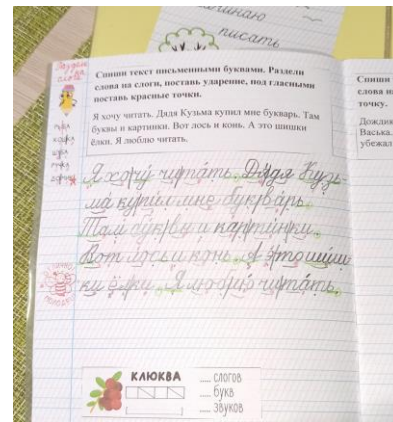 чинаю
писать
Спиши текст письменными буквами. Раздели
слова на слоги, поставь ударение, под гласными
поставь красные точки.
Я хочу читать. Дядя Кузьма купил мне букварь. Там
буквы и картинки. Вот лось и конь. А это шишки
ёлки. Я люблю читать.
Я хочу читать. Дядя Кузь-
ма купил мне букварь.
Там буквы и картинки.
Вот лось и конь. А это шиш-
ки ёлки. Я люблю читать.
КЛЮКВА
слогов
букв
звуков
Спиши
слова н
точку.
Дождик
Васька.
убежал